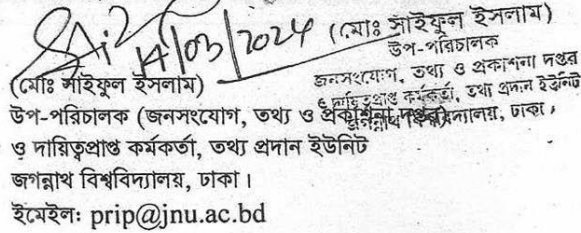 14/03/2024
(মোঃ সাইফুল ইসলাম)
উপ-পরিচালক
জনসংযোগ, তথ্য ও প্রকাশনা দপ্তর
ও দায়িত্বপ্রাপ্ত কর্মকর্তা, তথ্য প্রদান ইউনিট
জগন্নাথ বিশ্ববিদ্যালয়, ঢাকা।
(মোঃ সাইফুল ইসলাম)
উপ-পরিচালক (জনসংযোগ, তথ্য ও প্রকাশনা দপ্তর)
ও দায়িত্বপ্রাপ্ত কর্মকর্তা, তথ্য প্রদান ইউনিট
জগন্নাথ বিশ্ববিদ্যালয়, ঢাকা।
ইমেইলঃ prip@jnu.ac.bd